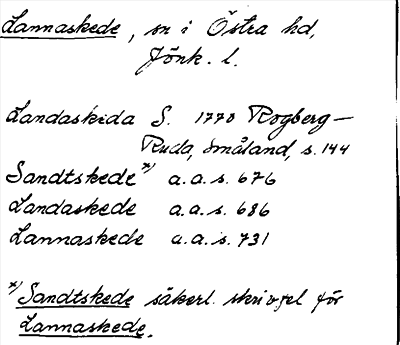 Lannaskede, sn i Östra hd,
Jönk. l.
Landaskeda S. 1770 Rogberg-
Ruda, Småland, s. 144
Sandtskede x) a.a.s. 676
Landaskede a.a.s. 686
Lannaskede a.a.s. 731
x) Sandtskede säkerl. skrivfel för
Lannaskede.